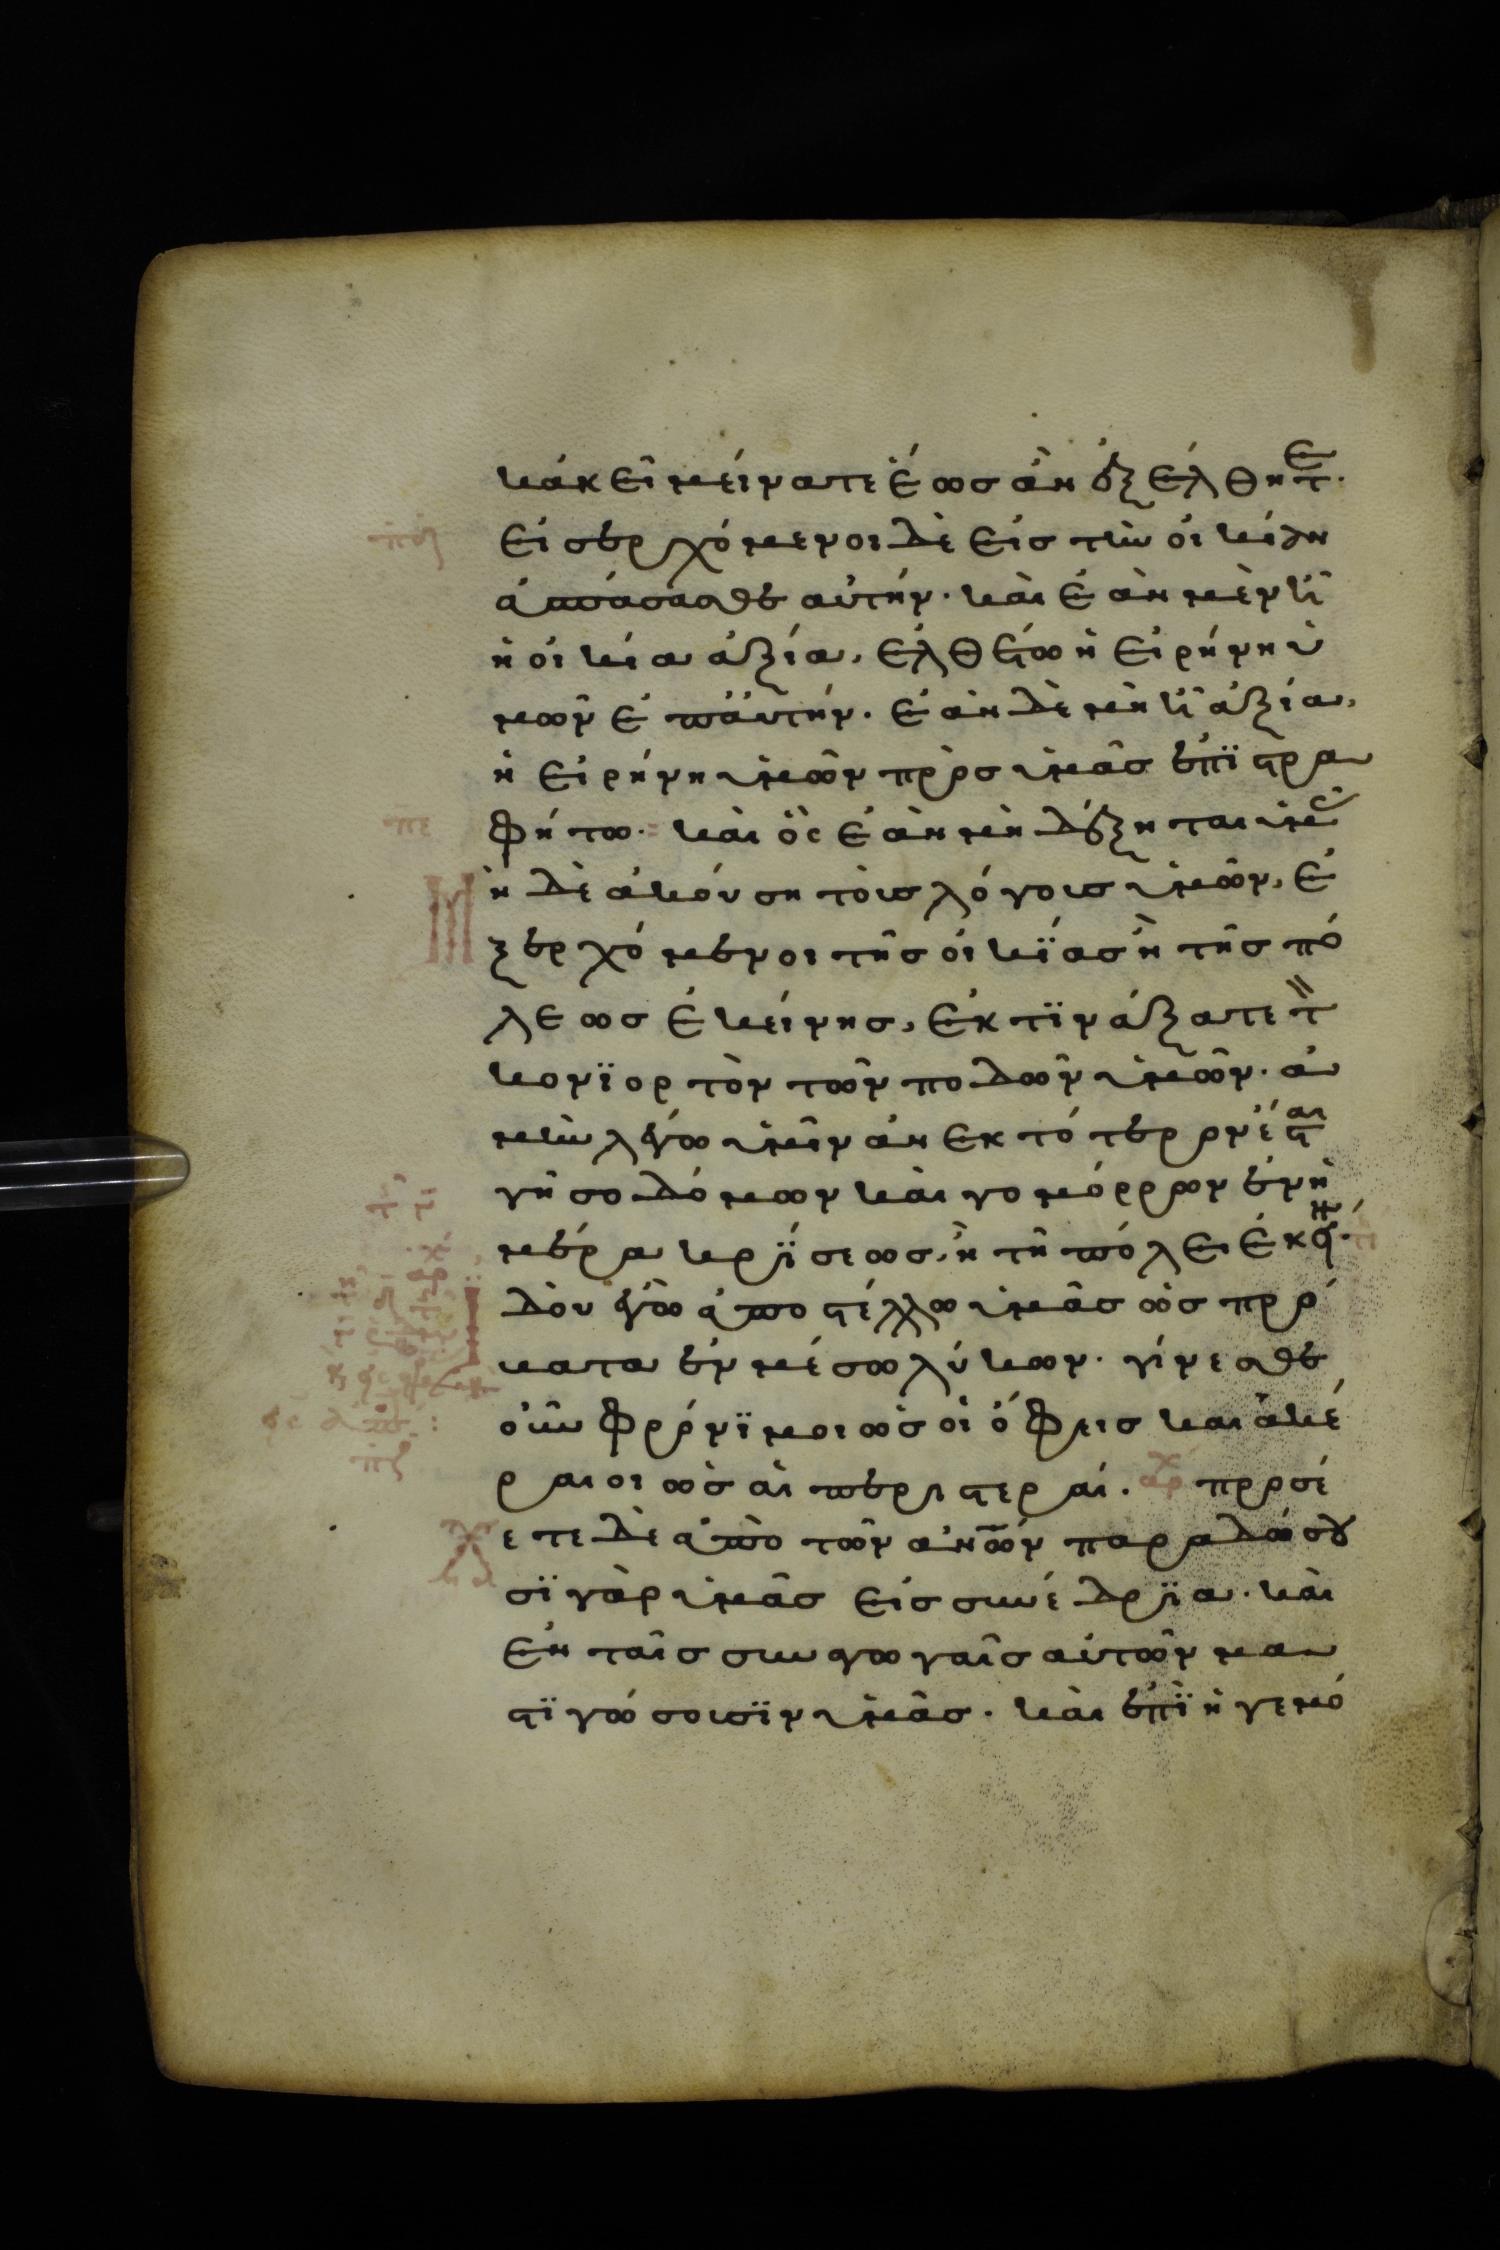 κἀκεῖ μείνατε ἕως ἂν ἐξέλθητε·
εἰσερχόμενοι δὲ εἰς τὴν οἰκίαν
ἀσπάσασθε αὐτήν· καὶ ἐὰν μὲν ᾖ
ἡ οἰκία ἀξία, ἐλθέτω ἡ εἰρήνη ὑ
μῶν ἐπ αὐτήν· ἐὰν δὲ μὴ ᾖ ἀξία,
ἡ εἰρήνη ὑμῶν πρὸς ὑμᾶς ἐπϊστρα
φήτω· καὶ ὃς ἐὰν μὴ δέξηται ὑμᾶς
μὴ δὲ ἀκούση τοὺς λόγους ὑμῶν, ἐ
ξερχόμενοι τῆς οἰκΐας ἢ τῆς πό
λεως ἐκείνης, ἐκτϊνάξατε τὸν
κονϊορτὸν τῶν ποδῶν ὑμῶν· ἀ
μὴν λέγω ὑμῖν ἀνεκτότερον ἔσται
γῆ σοδόμων καὶ γομόρρων ἐν ἡ
μέρα κρΐσεως, ἢ τῆ πόλει ἐκείνη·
ἰδοὺ ἐγὼ ἀποστέλλω ὑμᾶς ὡς πρό
βατα ἐν μέσω λύκων· γίνεσθε
οὖν φρόνϊμοι ὡς οἱ ὄφεις καὶ ἀκέ
ραιοι ὡς αἱ περιστεραί· ἀρχ προσέ
χετε δὲ ἀπὸ τῶν ἀνων παραδώσου
σϊ γὰρ ὑμᾶς εἰς συνέδρϊα· καὶ
ἐν ταῖς συναγωγαῖς αὐτῶν μα
στϊγώσουσϊν ὑμᾶς· καὶ ἐπϊ ἡγεμό